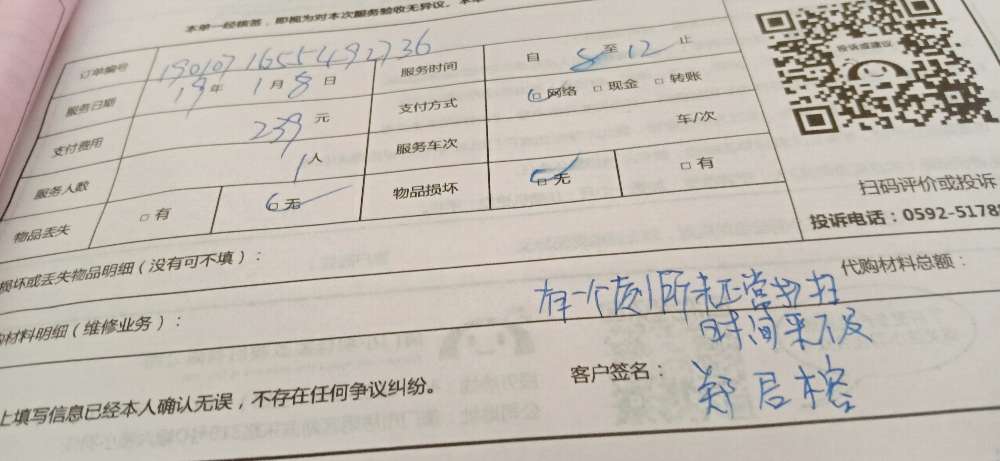 本单一经核签，即视为对本次服务验收无异议。本单
订单编号 1901071655492736 服务时间 自 8 至 12 止
服务日期 19 年 1 月 8 日 支付方式 □ 网络 □ 现金 □ 转账
支付费用 239 元 服务车次 车/次
服务人数 1 人 物品损坏 □ 无 □ 有
物品丢失 □ 有 □ 无
投诉或建议
扫码评价或投诉
投诉电话：0592-5178
损坏或丢失物品明细（没有可不填）：
代购材料总额：
材料明细（维修业务）：
有一个厕所未正常打扫
时间来不及
上填写信息已经本人确认无误，不存在任何争议纠纷。
客户签名：